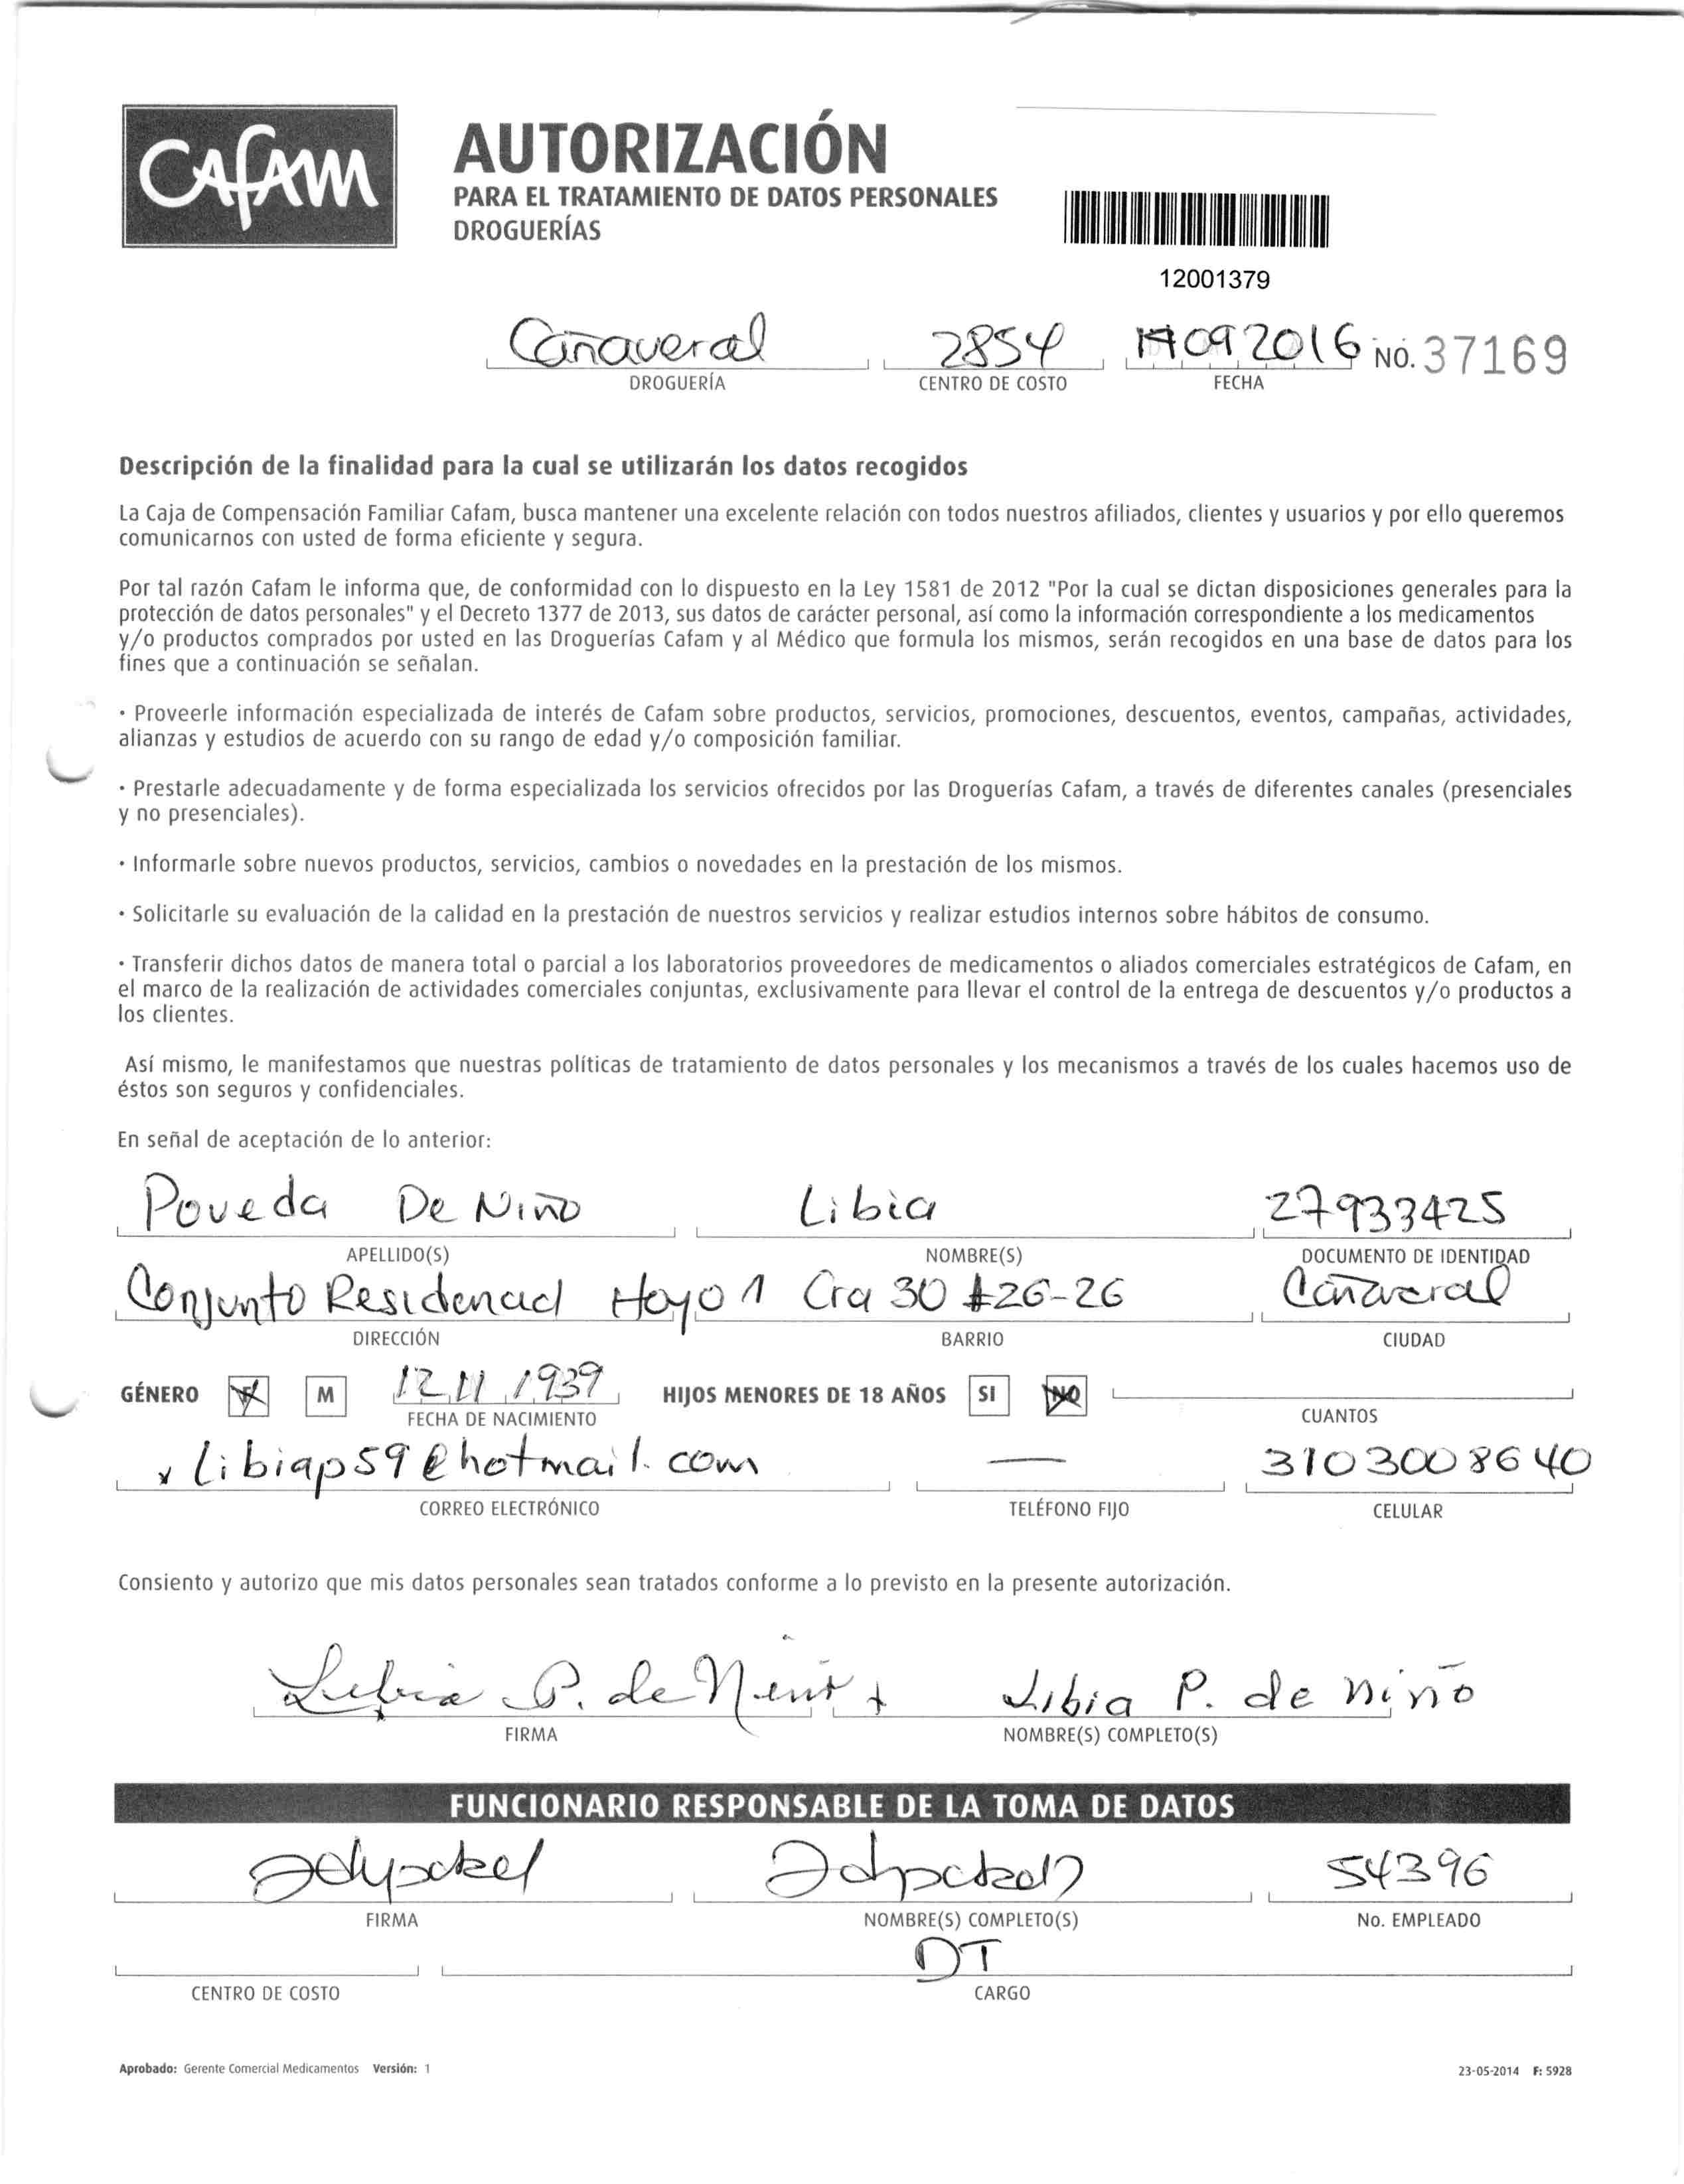 CAFAM
AUTORIZACIÓN
PARA EL TRATAMIENTO DE DATOS PERSONALES
DROGUERÍAS
12001379
Cañaveral 2854 092016 NO. 37169
DROGUERÍA CENTRO DE COSTO FECHA
Descripción de la finalidad para la cual se utilizarán los datos recogidos
La Caja de Compensación Familiar Cafam, busca mantener una excelente relación con todos nuestros afiliados, clientes y usuarios y por ello queremos
comunicarnos con usted de forma eficiente y segura.
Por tal razón Cafam le informa que, de conformidad con lo dispuesto en la Ley 1581 de 2012 "Por la cual se dictan disposiciones generales para la
protección de datos personales" y el Decreto 1377 de 2013, sus datos de carácter personal, así como la información correspondiente a los medicamentos
y/o productos comprados por usted en las Droguerías Cafam y al Médico que formula los mismos, serán recogidos en una base de datos para los
fines que a continuación se señalan.
· Proveerle información especializada de interés de Cafam sobre productos, servicios, promociones, descuentos, eventos, campañas, actividades,
alianzas y estudios de acuerdo con su rango de edad y/o composición familiar.
· Prestarle adecuadamente y de forma especializada los servicios ofrecidos por las Droguerías Cafam, a través de diferentes canales (presenciales
y no presenciales).
· Informarle sobre nuevos productos, servicios, cambios o novedades en la prestación de los mismos.
· Solicitarle su evaluación de la calidad en la prestación de nuestros servicios y realizar estudios internos sobre hábitos de consumo.
· Transferir dichos datos de manera total o parcial a los laboratorios proveedores de medicamentos o aliados comerciales estratégicos de Cafam, en
el marco de la realización de actividades comerciales conjuntas, exclusivamente para llevar el control de la entrega de descuentos y/o productos a
los clientes.
Así mismo, le manifestamos que nuestras políticas de tratamiento de datos personales y los mecanismos a través de los cuales hacemos uso de
éstos son seguros y confidenciales.
En señal de aceptación de lo anterior:
Poveda De Niño Libia 27933425
APELLIDO(S) NOMBRE(S) DOCUMENTO DE IDENTIDAD
Conjunto Residencial Hoyo 1 Cra 30 #26-26 Cañaveral
DIRECCIÓN BARRIO CIUDAD
GÉNERO F M 12 11 1939 HIJOS MENORES DE 18 AÑOS SI NO
FECHA DE NACIMIENTO CUANTOS
x libiap59@hotmail.com — 3103008640
CORREO ELECTRÓNICO TELÉFONO FIJO CELULAR
Consiento y autorizo que mis datos personales sean tratados conforme a lo previsto en la presente autorización.
Libia P. de Niño Libia P. de niño
FIRMA NOMBRE(S) COMPLETO(S)
FUNCIONARIO RESPONSABLE DE LA TOMA DE DATOS
54396
FIRMA NOMBRE(S) COMPLETO(S) No. EMPLEADO
DT
CENTRO DE COSTO CARGO
Aprobado: Gerente Comercial Medicamentos Versión: 1 23-05-2014 F: 5928